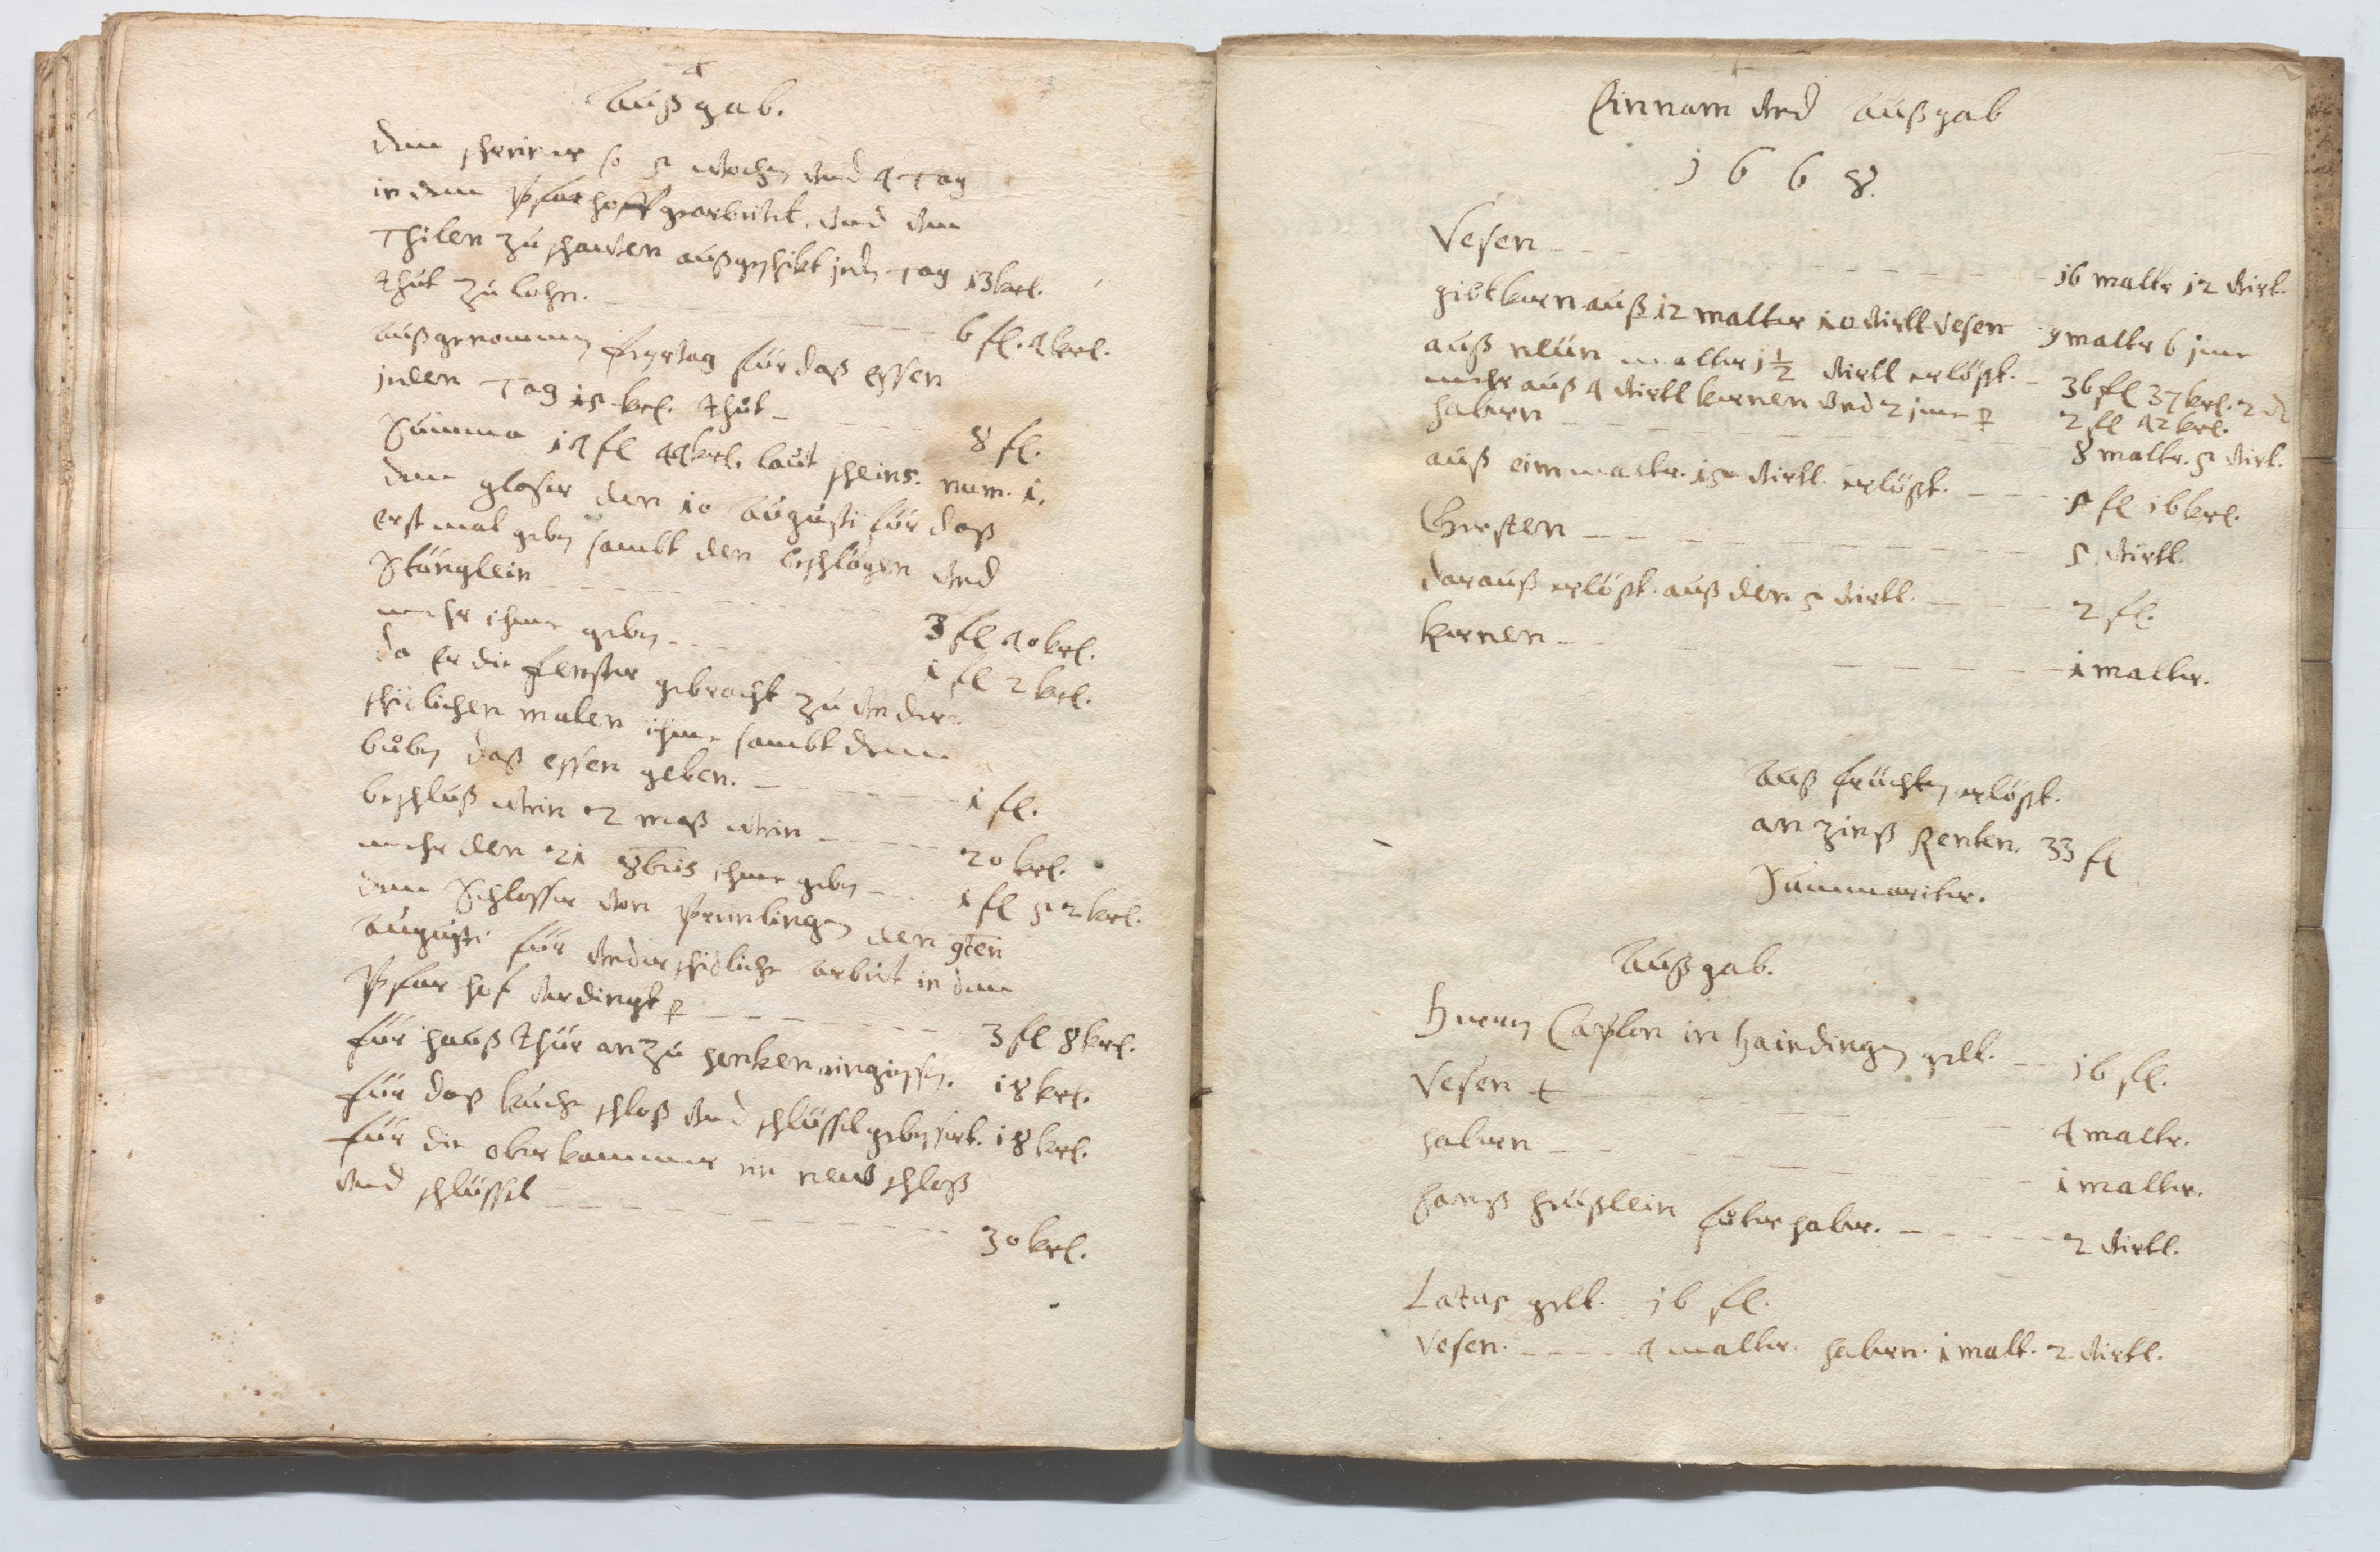 Außgab.
dem schreiner so 5 wochen vnd 4 Tag
in dem Pfarhoff gearbeitet, vnd dem
Thilen zu schawen außgeschikt jeden Tag 13 krl.
thut zu lohn. 6 fl. 4 krl.
außgenommen feyrtag für daß essen
jeden Tag 15 krl. thut 8 fl.
Summa 14 fl 44 krl. laut scheins. num. 1.
dem glaser den 10 Augusti für daß
erst mal geben sambt den beschlögen vnd
Stänglein 3 fl 40 krl.
mehr ihme geben 1 fl 2 krl.
da er die fenster gebracht zu vnder-
schidlichen malen ihme sambt dem
buben daß essen geben. 1 fl.
beschluß wein 2 maß wein 20 krl.
mehr den 21 8bris ihme geben 1 fl 52 krl.
dem Schlosser von den 9ten
Augusti für vnderschidliche arbeit in dem
Pfarhof verdingt 3 fl 8 krl.
für hauß thür an zu henken 18 krl.
für daß kuche schloß vnd schlüssel gebessert. 18 krl.
für die ober kammer ein new schloß
vnd schlüssel 30 krl.
Einnam vnd Außgab
1668.
Vesen 16 maltr 12 virtl.
giltkern auß 12 malter 10 virtl vesen 9 maltr 6 jme
auß neün malter 1½ virtl erlößt. 36 fl 37 krl. 2 dl
mehr auß 4 virtl kernen vnd 2 jme 2 fl 42 krl.
habern 8 maltr. 5 virtl.
auß eim maltr. 15 virtl. erlößt. 5 fl 16 krl.
Gersten 5 virtl.
darauß erlößt. auß den 5 virtl. 2 fl.
kernen 1 malter.
Auß früchten erlößt.
an zinß Renten. 33 fl
Summariter.
Außgab.
Herren Caplon in gelt. 16 fl.
Vesen 4 maltr.
habern 1 malter.
Hanß futer haber. 2 virtl.
Latus gelt. 16 fl.
Vesen. 4 malter. habern. 1 malt. 2 virtl.